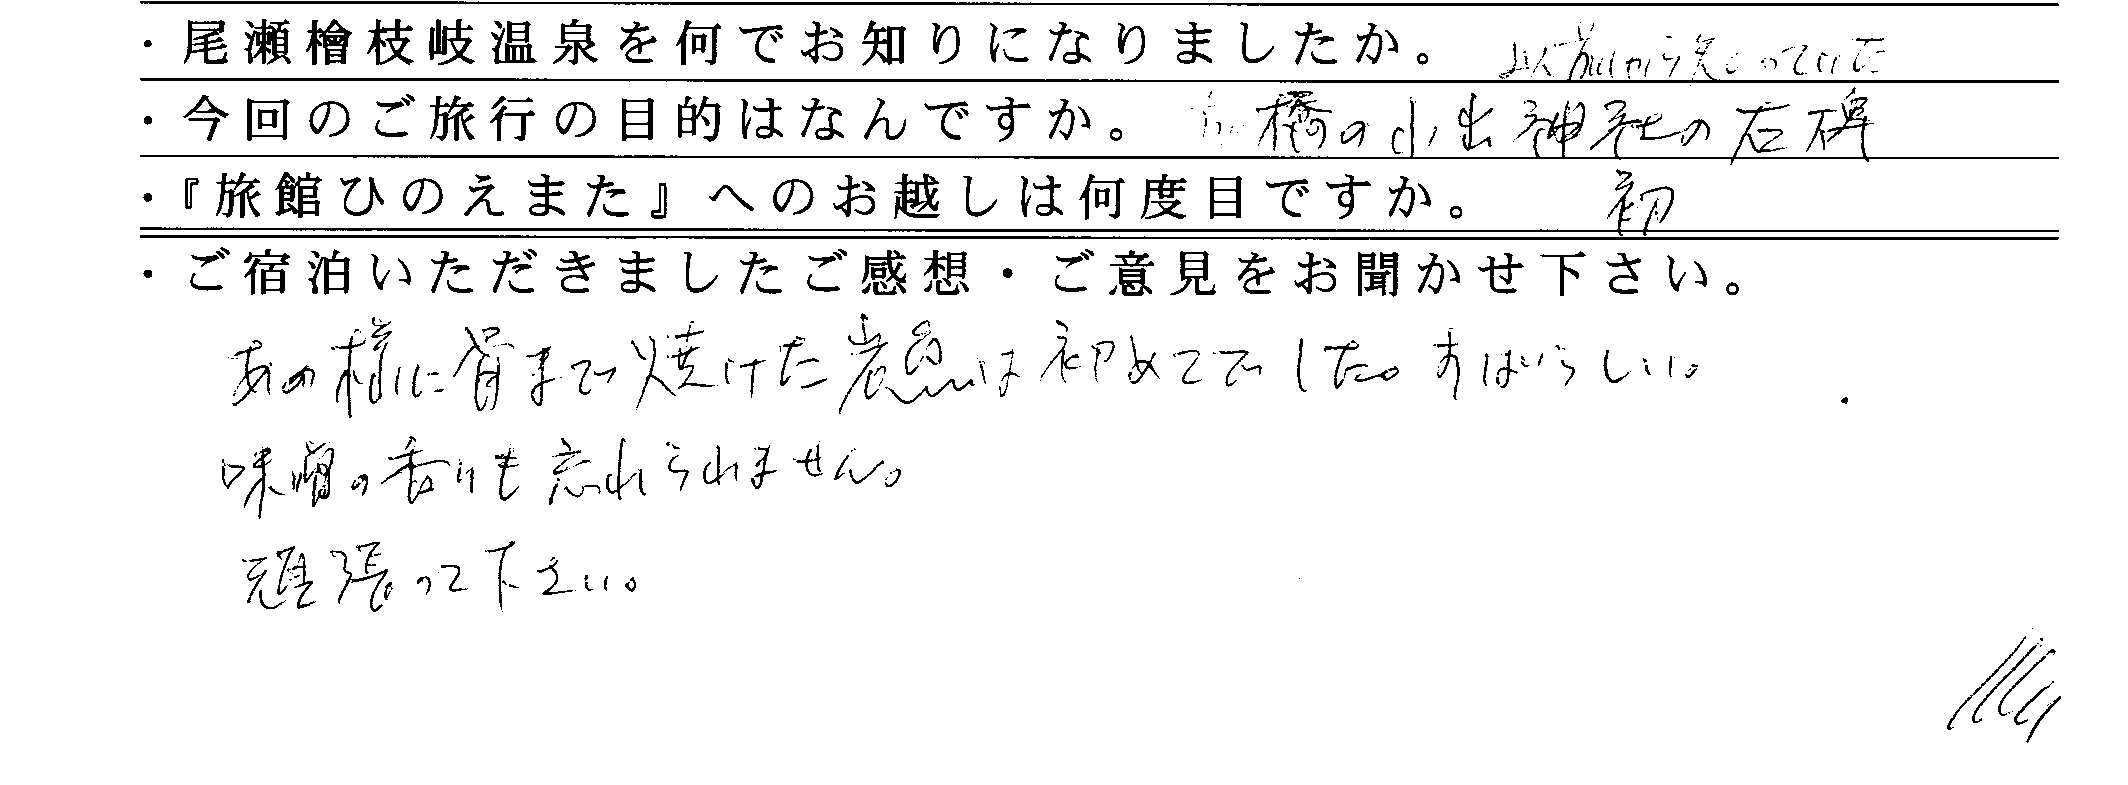 ・尾瀬檜枝岐温泉を何でお知りになりましたか。 以前から知っていた
・今回のご旅行の目的はなんですか。 橋の小出神社の石碑
・『旅館ひのえまた』へのお越しは何度目ですか。 初
・ご宿泊いただきましたご感想・ご意見をお聞かせ下さい。
あの様に骨まで焼けた岩魚は初めてでした。すばらしい。
味噌の香りも忘れられません。
頑張って下さい。